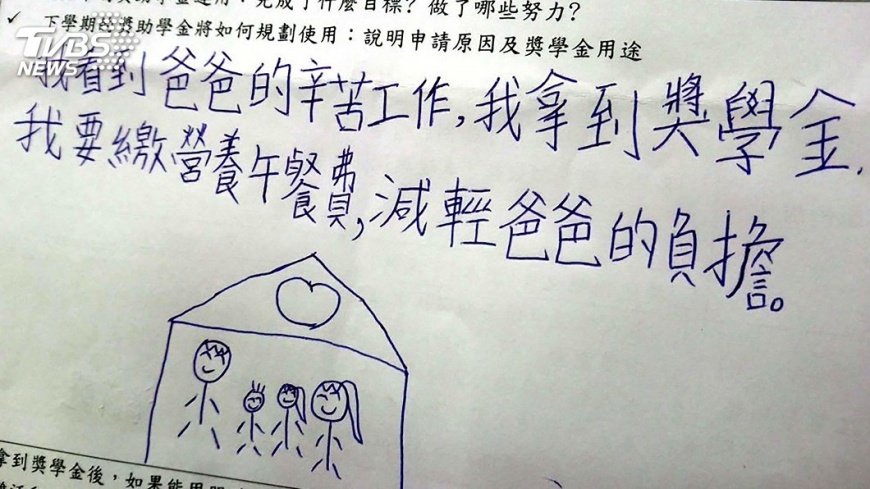 完成了什麼目標？做了哪些努力？
✓ 下學期的獎助學金將如何規劃使用：說明申請原因及獎學金用途
TVBS
NEWS
我看到爸爸的辛苦工作，我拿到獎學金，
我要繳營養午餐費，減輕爸爸的負擔。
拿到獎學金後，如果能用